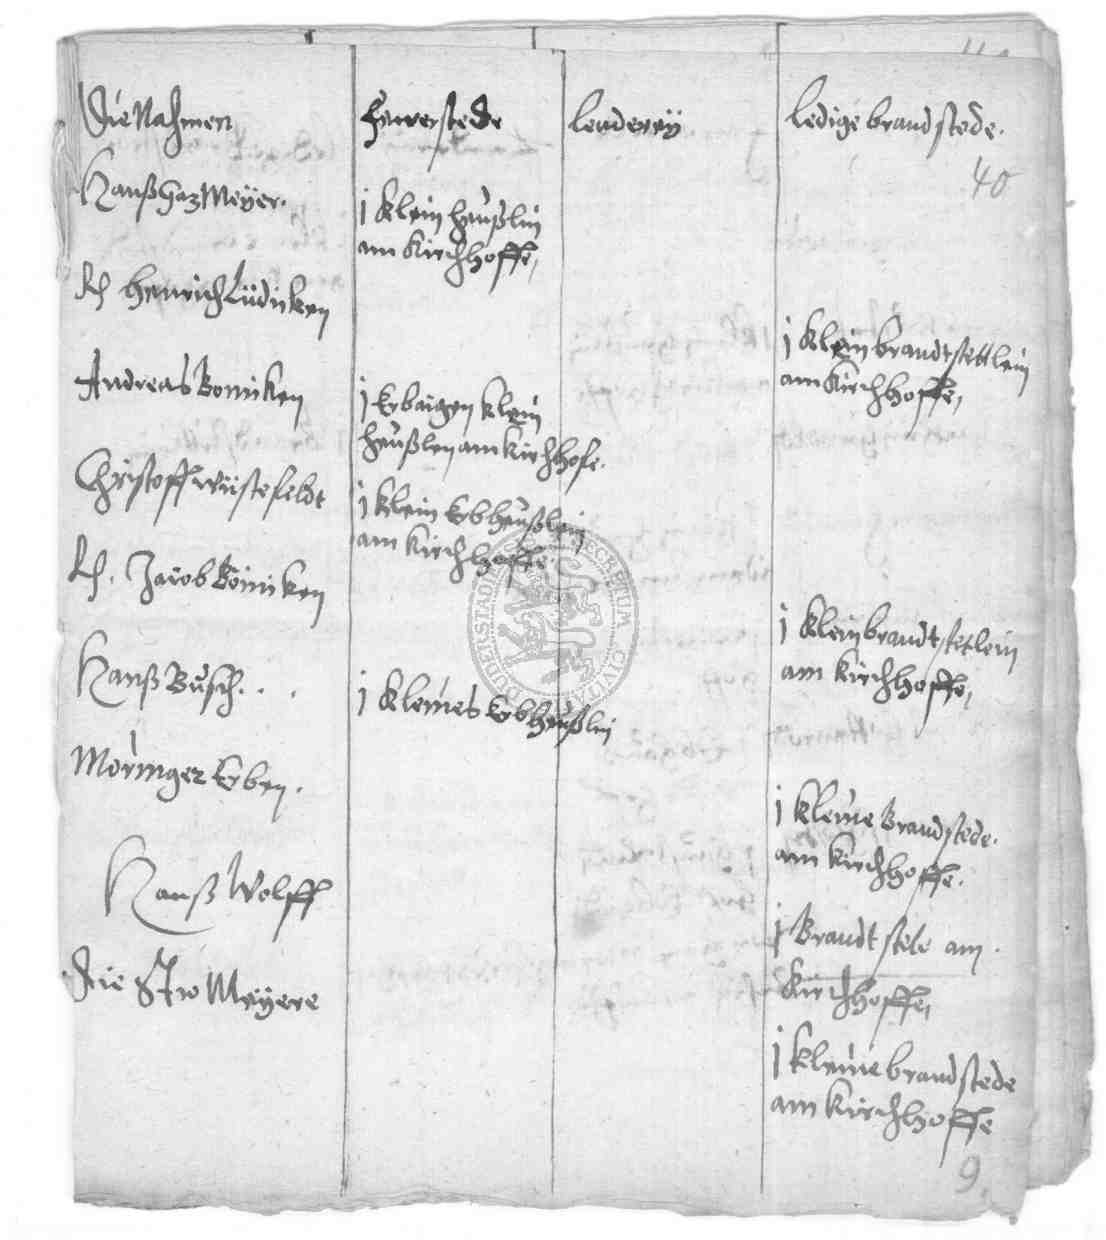 Die Nahmen
Fewerstede
Lenderey
Ledige brandstede.
40
Hanß Meÿer.
j klein heußlin
am Kirchhoffe,
Henrich Lüdicken
j klein brandtstettlein
am Kirchhoffe,
Andreas Bonniken
j Erbaigen klein
heußlen am Kirchhofe.
Christoff Wüstefeldt
j klein Erbheußlein
am Kirchhoffe
Jacob Bönniken
j klein brandtstetlein
am Kirchhoffe,
Hanß Busch . .
j kleines Erbheußlin
Möringer Erben.
j kleine Brandstede.
am Kirchhoffe.
Hanß Wolff
j Brandt stete am
Kirchhoffe,
Die Meÿere
j kleine brandstede
am Kirchhoffe
9.
DUDERSTAD SECRETUM CIVITAT